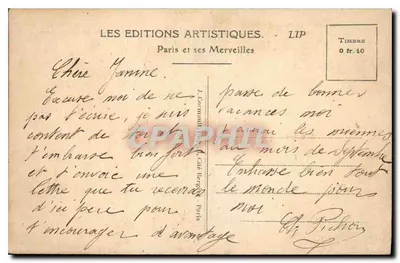 LES EDITIONS ARTISTIQUES. - LIP
Paris et ses Merveilles
TIMBRE
0 fr. 40
Chère Janine
Excuse moi de ne
pas t'écrire, je suis
content de toi et
t'embrasse bien fort
et t'envoie une
lettre que tu recevras
d'ici peu pour
t'encourager d'avantage
J. Cormault Paris
passe de bonnes
vacances moi
les miennes
au mois de Septembre
Embrasse bien tout
le monde pour
moi
Ch. Pichon
CPARHPHIL